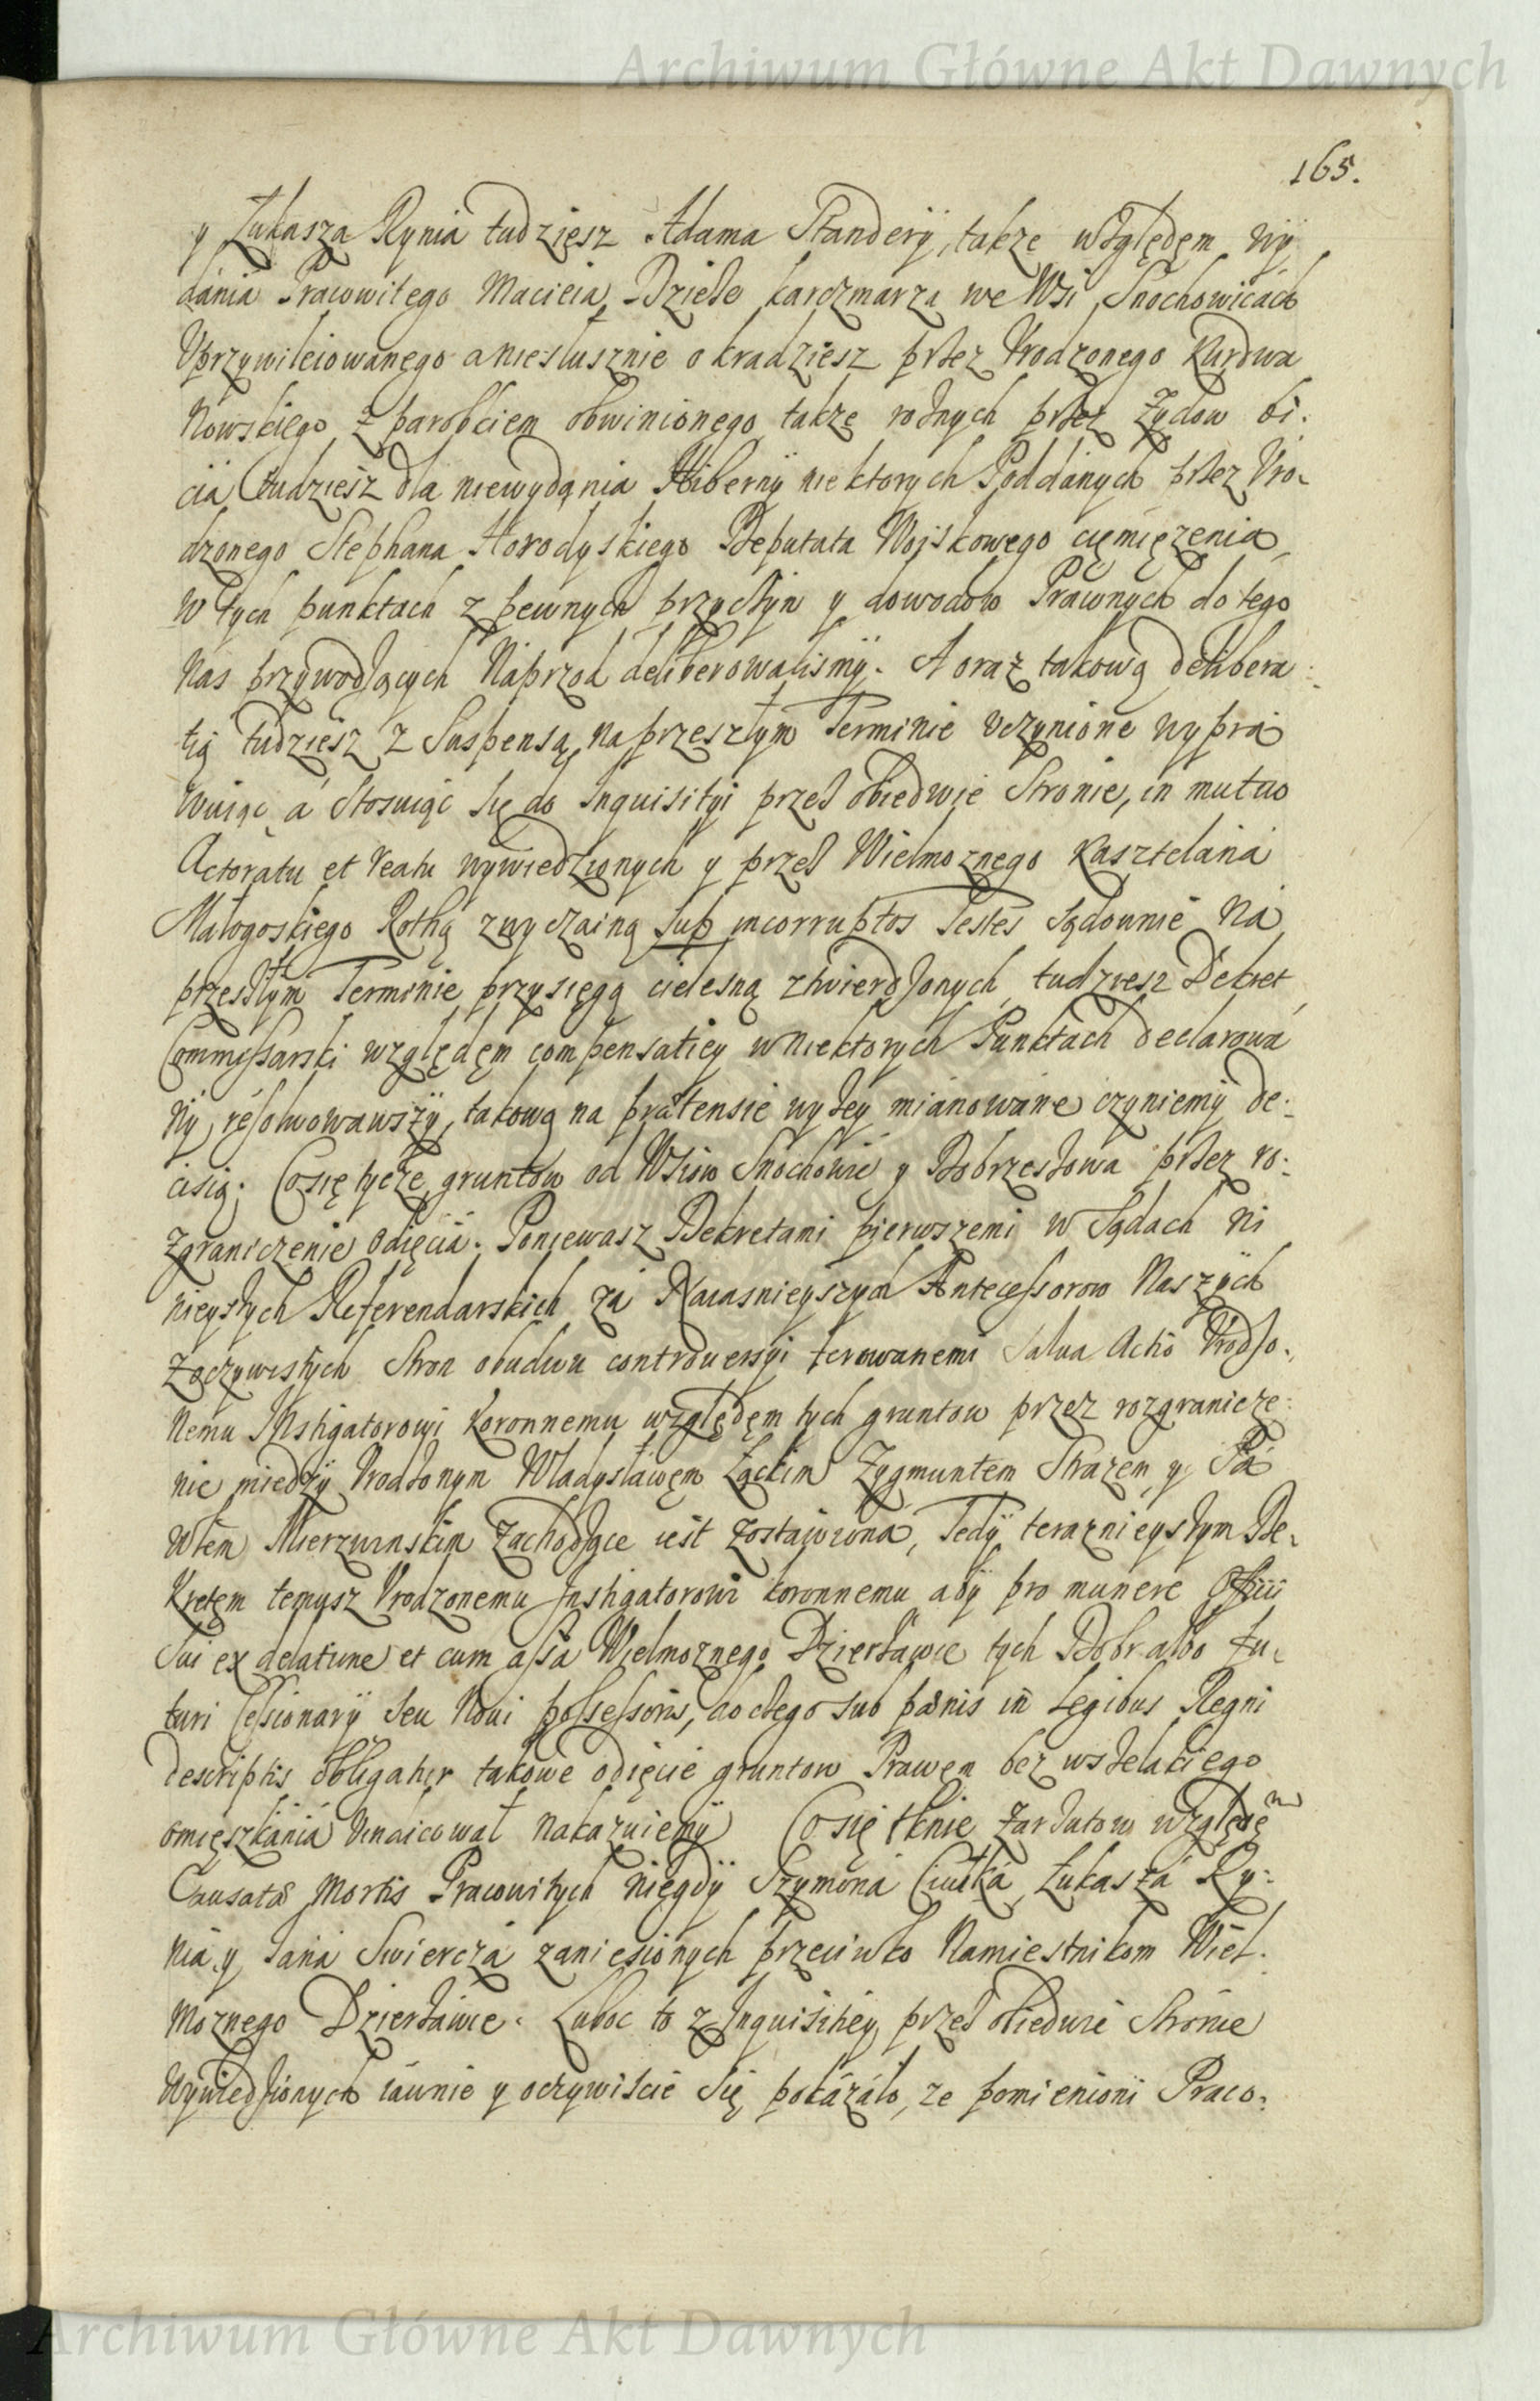 Archiwum Główne Akt Dawnych
165.
y Łukasza Rynia tudziesz Adama Standery, takze względęm wy
dania Pracowitego Macieia Dzieło karczmarza we Wsi Snochowicach
Uprzywileiowanego a niesłusznie o kradziesz przez Urodzonego Kurdwa
nowskiego z parobkiem obwinionego takze roznych przez Zydow bi:
cia tudziesz dla niewydania Hiberny niektorych Poddanych przez Uro-
dzonego Stephana Horodyskiego Deputata Wojskowego ciemięzenia
W tych punktach z pewnych przyczyn y dowodow Prawnych do tego
nas przywodzących Naprzod deliberowalismy. A oraz takową delibera:
tią tudziesz z Suspensą na przeszłym Terminie uczynione wypra
wuiąc a stosuiąc się do Inquisityi przez obiedwie Stronie, in mutuo
Actoratu et reatu wywiedzionych y przez Wielmoznego Kasztelana
Małogoskiego Rothą zwyczainą sup incorruptos Testes sądownie na
przeszłym Terminie przysięgą cielesną ztwierdzonych, tudziesz Dekret
Commissarski względęm compensatiey w niektorych Punktach declarowa
ny, resolwowawszy, takową na praetensie wyzey mianowane czyniemy de:
cisią; Co się tycze gruntow od Wsiow Snochowic y Dobrzeszowa przez ro:
zgraniczenie odięcia. Poniewasz Dekretami pierwszemi w Sądach ni
nieyszych Referendarskich za Naiasnieyszych Antecessorow Naszych
z oczywistych Stron obudwu controversyi ferowanemi Salva Actio Urodzo.
nemu Instigatorowi Koronnemu względęm tych gruntow przez rozgranicze:
nie miedzy Urodzonym Władysławęm Łąckim Zygmuntem Strazem y Pa
włem Mierzwinskim zachodzące iest zostawiona, Tedy teraznieyszym De.
kretęm temusz Urodzonemu Instigatorowi koronnemu aby pro munere Officii
sui ex delatione et cum assa Wielmoznego Dzierzawce tych Dobr albo fu.
turi Cessionary seu Novi possessoris, do czego sub paenis in Legibus Regni
descriptis obligatur takowe odięcie gruntow Prawem bez wszelakiego
omięszkania windicował nakazuiemy Co się tknie zarzutow względęm
Causatae Mortis Pracowitych niegdy Szymona Ciułka, Łukasza Ry:
nia, y Jana Swiercza zaniesionych przeciwko Namiestnikom Wiel.
moznego Dzierzawce. Luboc to z Inquisitiey przez obiedwie Stronie
wywiedzionych iawnie y oczywiscie się pokazało, ze pomienioni Praco:
Archiwum Główne Akt Dawnych